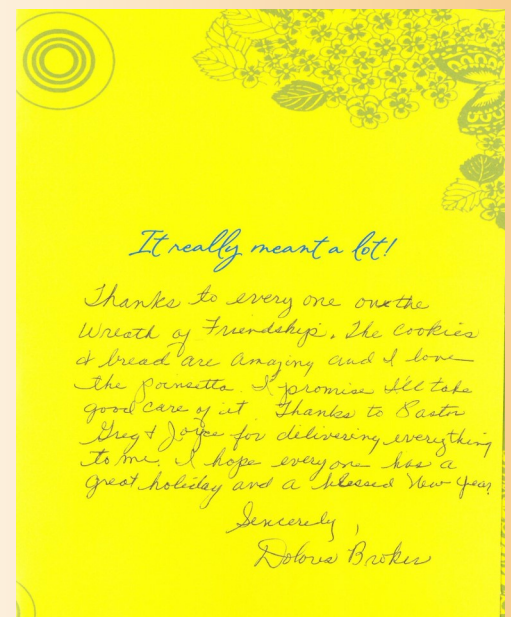 It really meant a lot!
Thanks to every one on the
Wreath of Friendship. The cookies
& bread are amazing and I love
the poinsetta. I promise I'll take
good care of it. Thanks to Pastor
Greg & Joyce for delivering everything
to me. I hope everyone has a
great holiday and a blessed New Year.
Sincerely,
Dolores